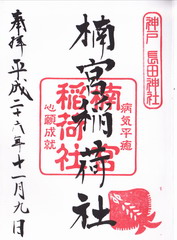 神戸 長田神社
楠宮稲荷社
楠宮
稲荷社
病気平癒
心願成就
奉拝 平成二十八年十一月九日